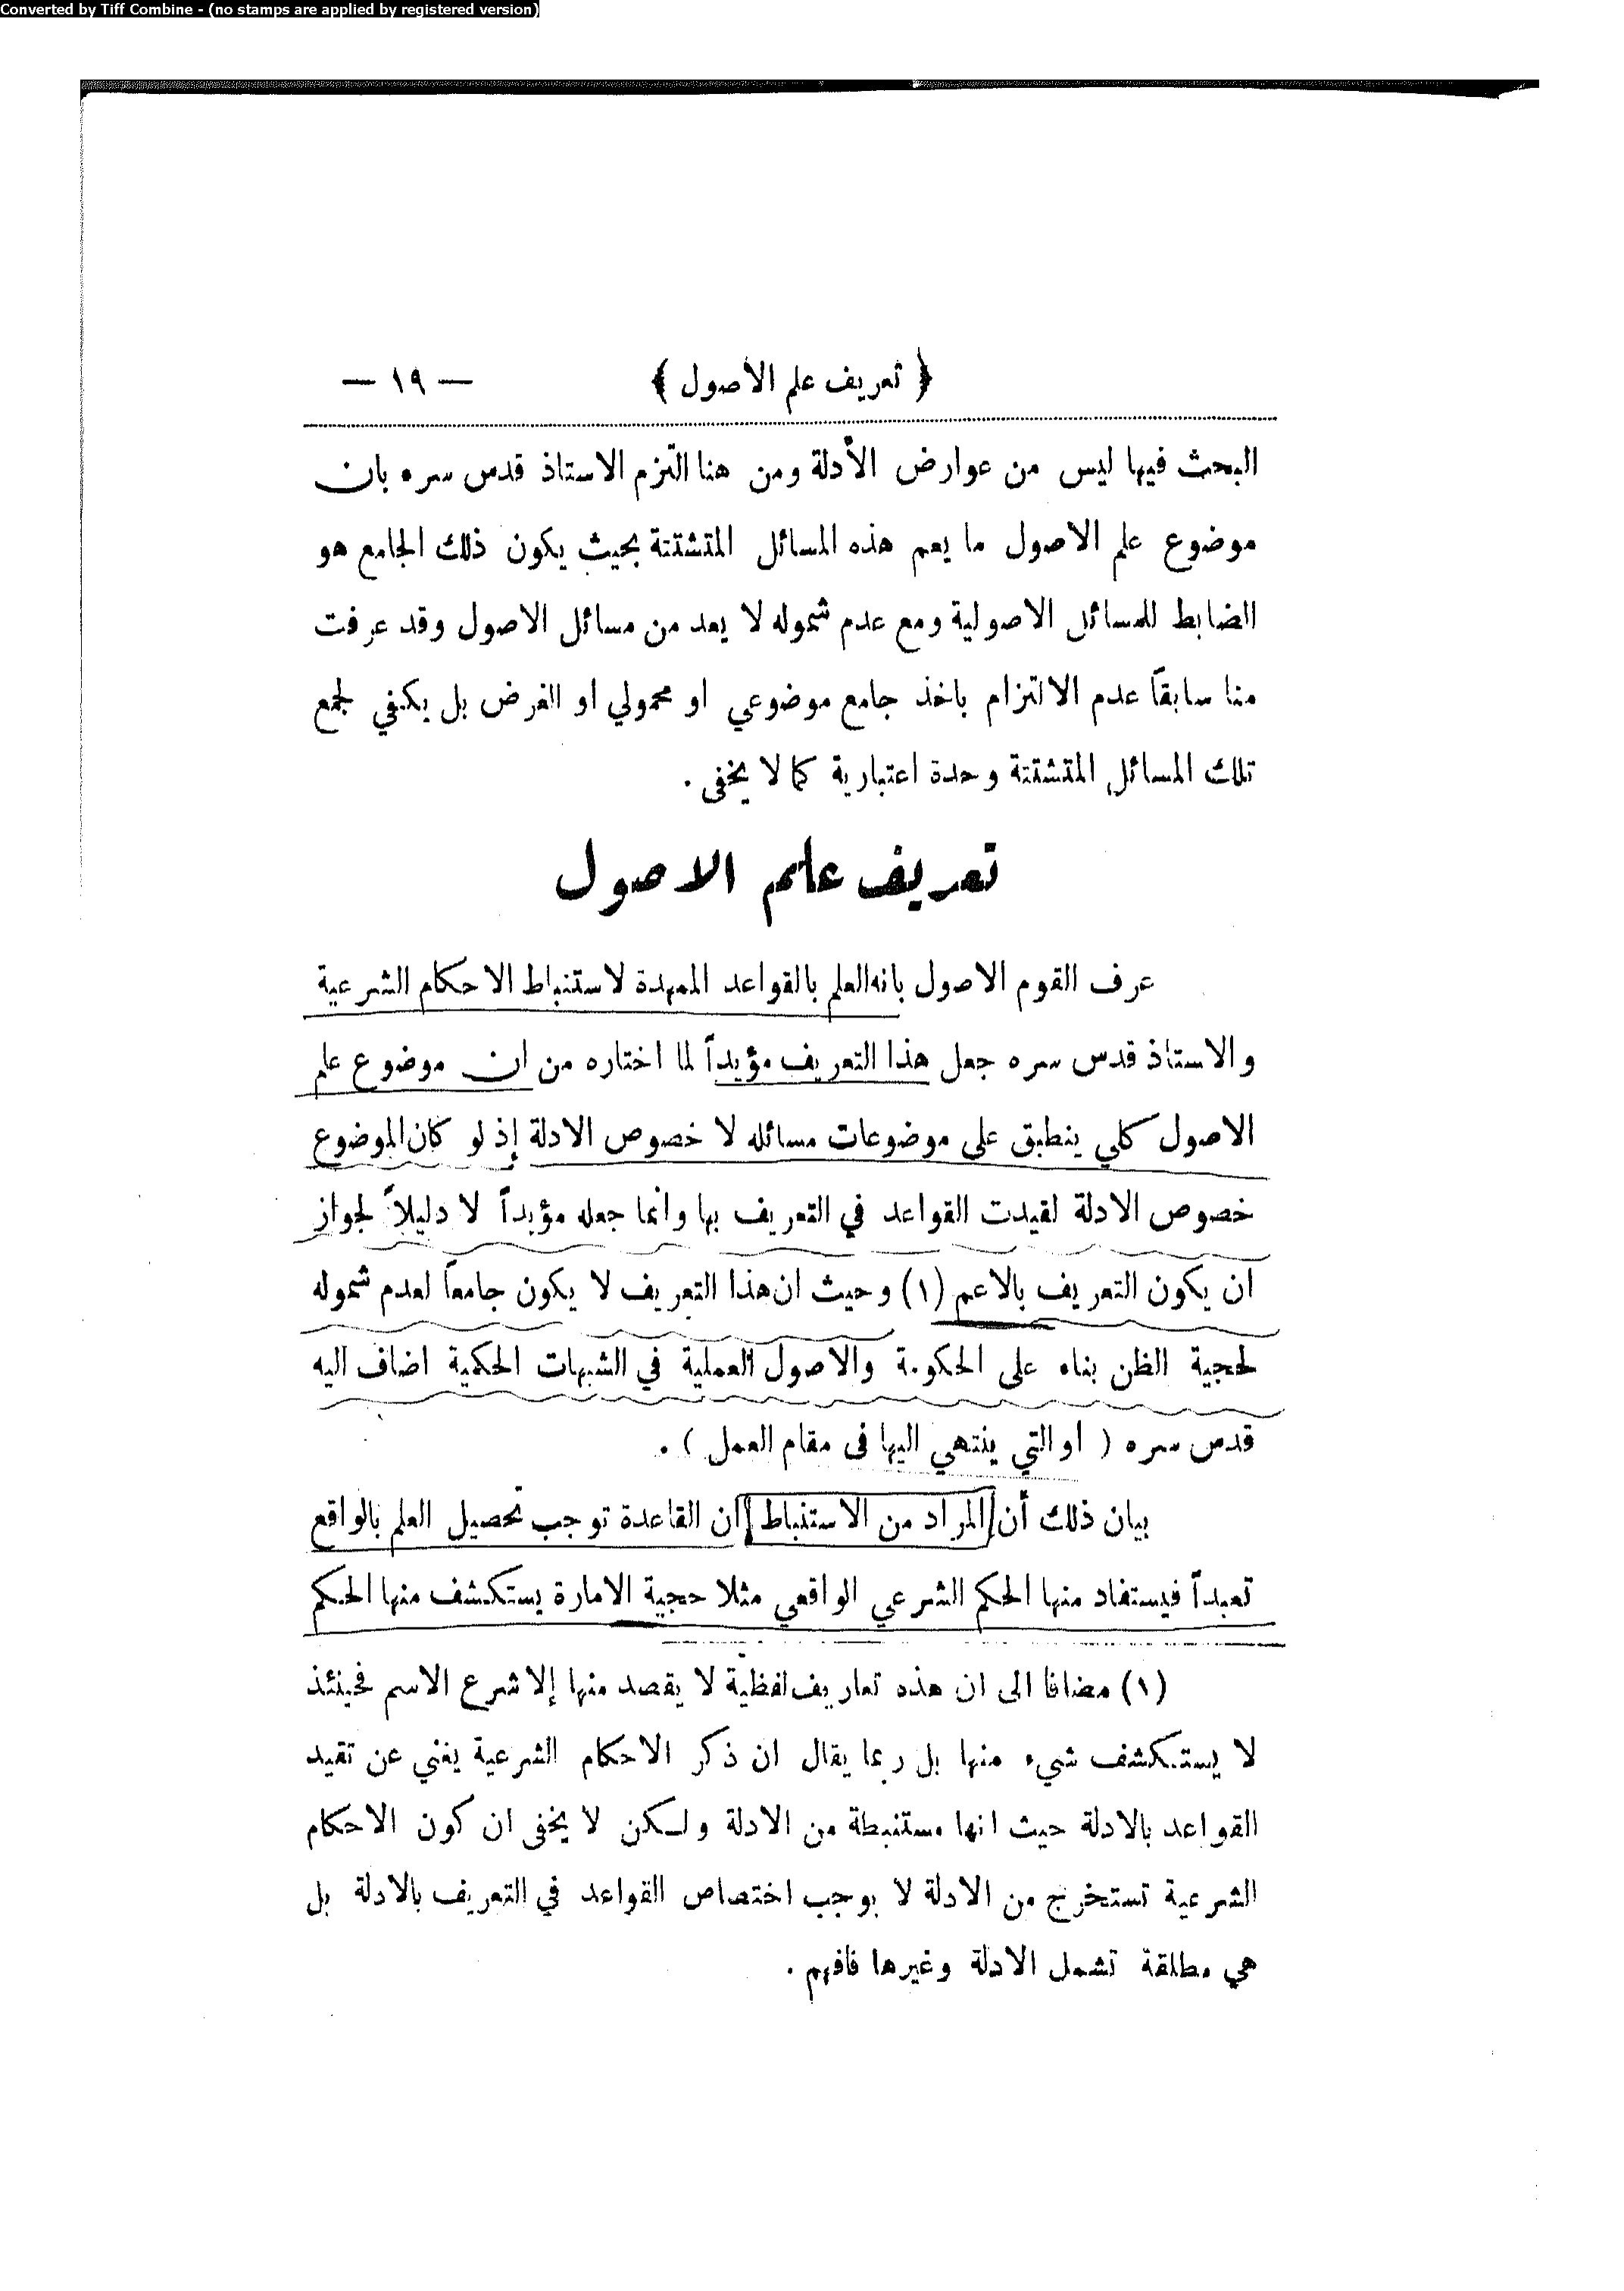 Converted by Tiff Combine - (no stamps are applied by registered version)
﴿ تعريف علم الأصول ﴾ — ١٩ —
البحث فيها ليس من عوارض الأدلة ومن هنا التزم الاستاذ قدس سره بان
موضوع علم الاصول ما يعم هذه المسائل المتشتتة بحيث يكون ذلك الجامع هو
الضابط للمسائل الاصولية ومع عدم شموله لا يعد من مسائل الاصول وقد عرفت
منا سابقاً عدم الالتزام باخذ جامع موضوعي او محمولي او الغرض بل يكفي لجمع
تلك المسائل المتشتتة وحدة اعتبارية كما لا يخفى .
تعريف علم الاصول
عرف القوم الاصول بانه العلم بالقواعد الممهدة لاستنباط الاحكام الشرعية
والاستاذ قدس سره جعل هذا التعريف مؤيداً لما اختاره من ان موضوع علم
الاصول كلي ينطبق على موضوعات مسائله لا خصوص الادلة إذ لو كان الموضوع
خصوص الادلة لقيدت القواعد في التعريف بها وانما جعله مؤيداً لا دليلاً لجواز
ان يكون التعريف بالاعم (١) وحيث ان هذا التعريف لا يكون جامعاً لعدم شموله
لحجية الظن بناء على الحكومة والاصول العملية في الشبهات الحكمية اضاف اليه
قدس سره ( او التي ينتهي اليها فى مقام العمل ) .
بيان ذلك أن المراد من الاستنباط ان القاعدة توجب تحصيل العلم بالواقع
تعبداً فيستفاد منها الحكم الشرعي الواقعي مثلا حجية الامارة يستكشف منها الحكم
(١) مضافا الى ان هذه تعاريف لفظية لا يقصد منها إلا شرع الاسم فحينئذ
لا يستكشف شيء منها بل ربما يقال ان ذكر الاحكام الشرعية يغني عن تقيد
القواعد بالادلة حيث انها مستنبطة من الادلة ولكن لا يخفى ان كون الاحكام
الشرعية تستخرج من الادلة لا يوجب اختصاص القواعد في التعريف بالادلة بل
هي مطلقة تشمل الادلة وغيرها فافهم .